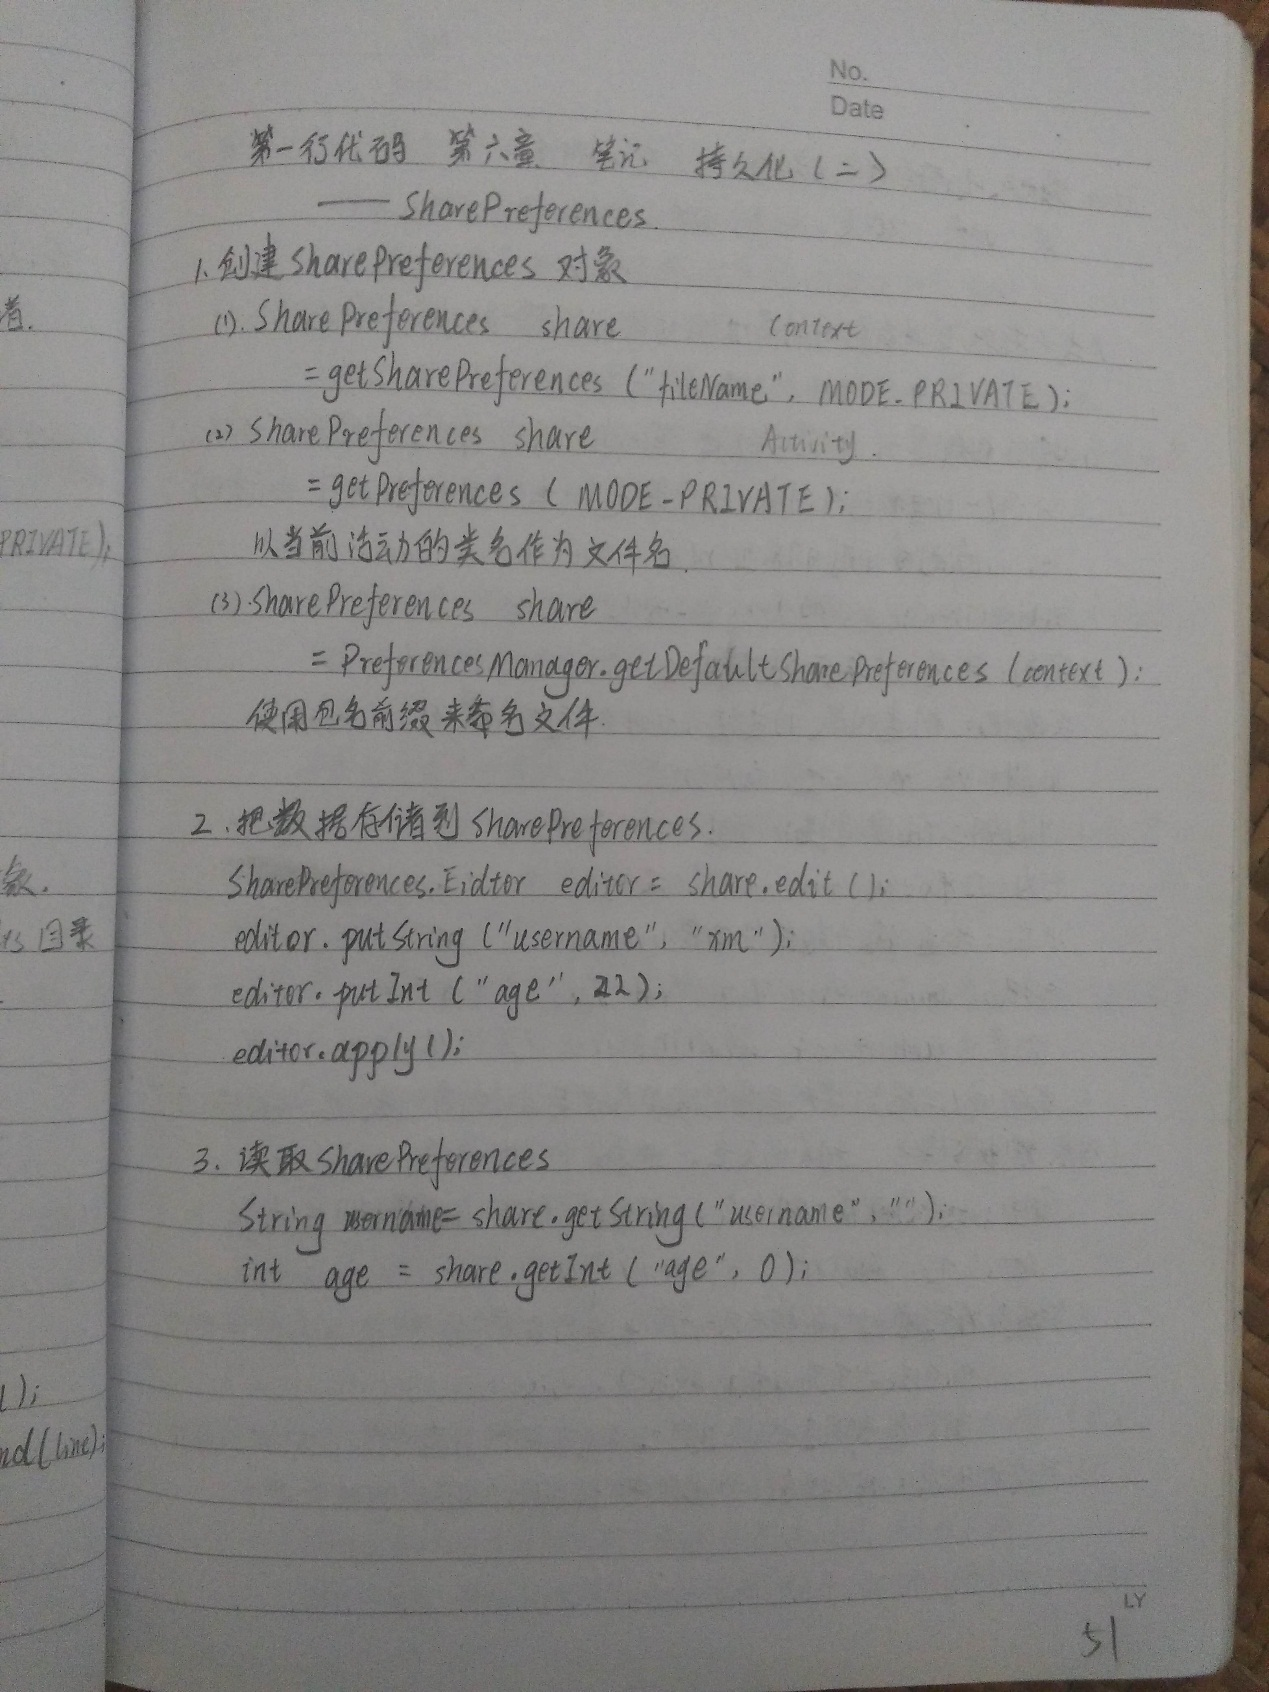 No.
Date
第一行代码 第六章 笔记 持久化(二)
—— SharePreferences.
1、创建SharePreferences 对象
(1). SharePreferences share Context
= getSharePreferences ("fileName", MODE_PRIVATE);
(2) SharePreferences share Activity.
= getPreferences ( MODE_PRIVATE);
以当前活动的类名作为文件名.
(3).SharePreferences share
= PreferencesManager.getDefaultSharePreferences (context);
使用包名前缀来命名文件.
2.把数据存储到SharePreferences.
SharePreferences.Eidtor editor = share.edit();
editor.putString ("username", "xm");
editor.putInt ("age", 22);
editor.apply();
3.读取SharePreferences
String username= share.getString("username", "");
int age = share.getInt ("age", 0);
LY
51
者.
PRIVATE);
象.
目录
);
nd(line);